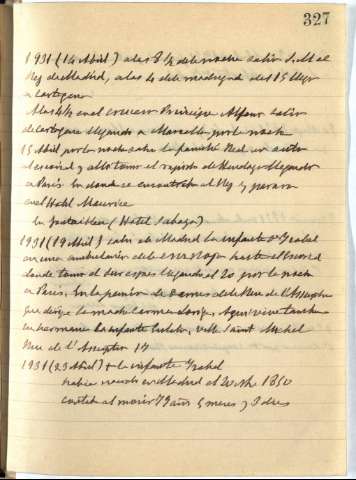 327
1931 (14 Abril) a las 8 ½ de la noche salió S.M. el
Rey de Madrid, a las 4 de la madrugd del 15 llego
a Cartagena
A las 4 ½ en el crucero Principe Alfonso salio
de Cartagena llegando a Marsella por la noche
15 Abril por la noche salio la familia Real en auto
al escorial y alli tomo el rapido de Hendaya llegando
a Paris en donde se encontro al Rey y pararon
en el Hotel Meurice
En Fontainbleau (Hotel Saboya)
1931 (19 Abril) salio de Madrid la infanta Dª Isabel
en una ambulancia de la hasta el Escorial
donde tomo el sur expres llegando el 20 por la noche
en Paris. En la pension de Damas de la Rue de l'Assomption
que dirige la madre Aqui vive tambien
su hermana la infanta Eulalia, Vill. Saint Michel
Rue de l'Assomption 17
1931 (23 Abril) + la infanta Isabel
habia nacido en Madrid el 20 1850
contaba al morir 79 años 4 meses y 3 dias